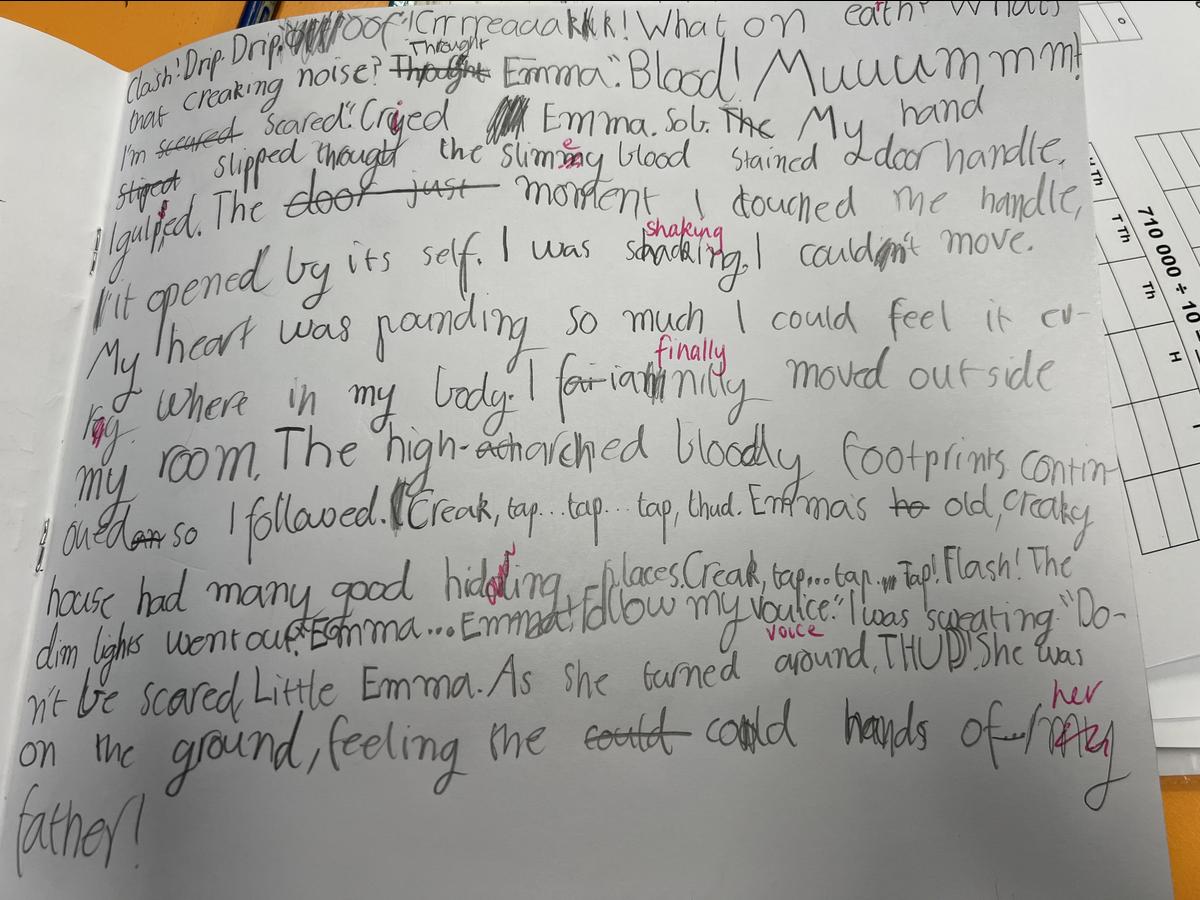 Clash! Drip. Drip. oof! Crrrreaaakkk! What on eath? Whats
that creaking noise? Throught Emma". Blood! Muuummmm!
I'm sceared scared". Cried Emma. Sob. The My hand
sliped slipped thought the slimey blood stained door handle,
I gulped. The door just moment I touched the handle,
it opened by its self. I was shaking. I couldn't move.
shaking
My heart was pounding so much I could feel it ev-
ry where in my body. I nilly moved out side
finally
my room. The high-arched bloodly footprints contin-
oued so I followed. Creak, tap... tap... tap, thud. Emma's old, creaky
house had many good hidding places. Creak, tap... tap... Tap! Flash! The
dim lights went out. "Emma... Emma. Follow my voulice." I was sweating. "Do-
voice
n't be scared, Little Emma. As she turned around, THUD! She was
on the ground, feeling the could cold hands of... her
father!
710 000 ÷ 10
Th
T Th
Th
H